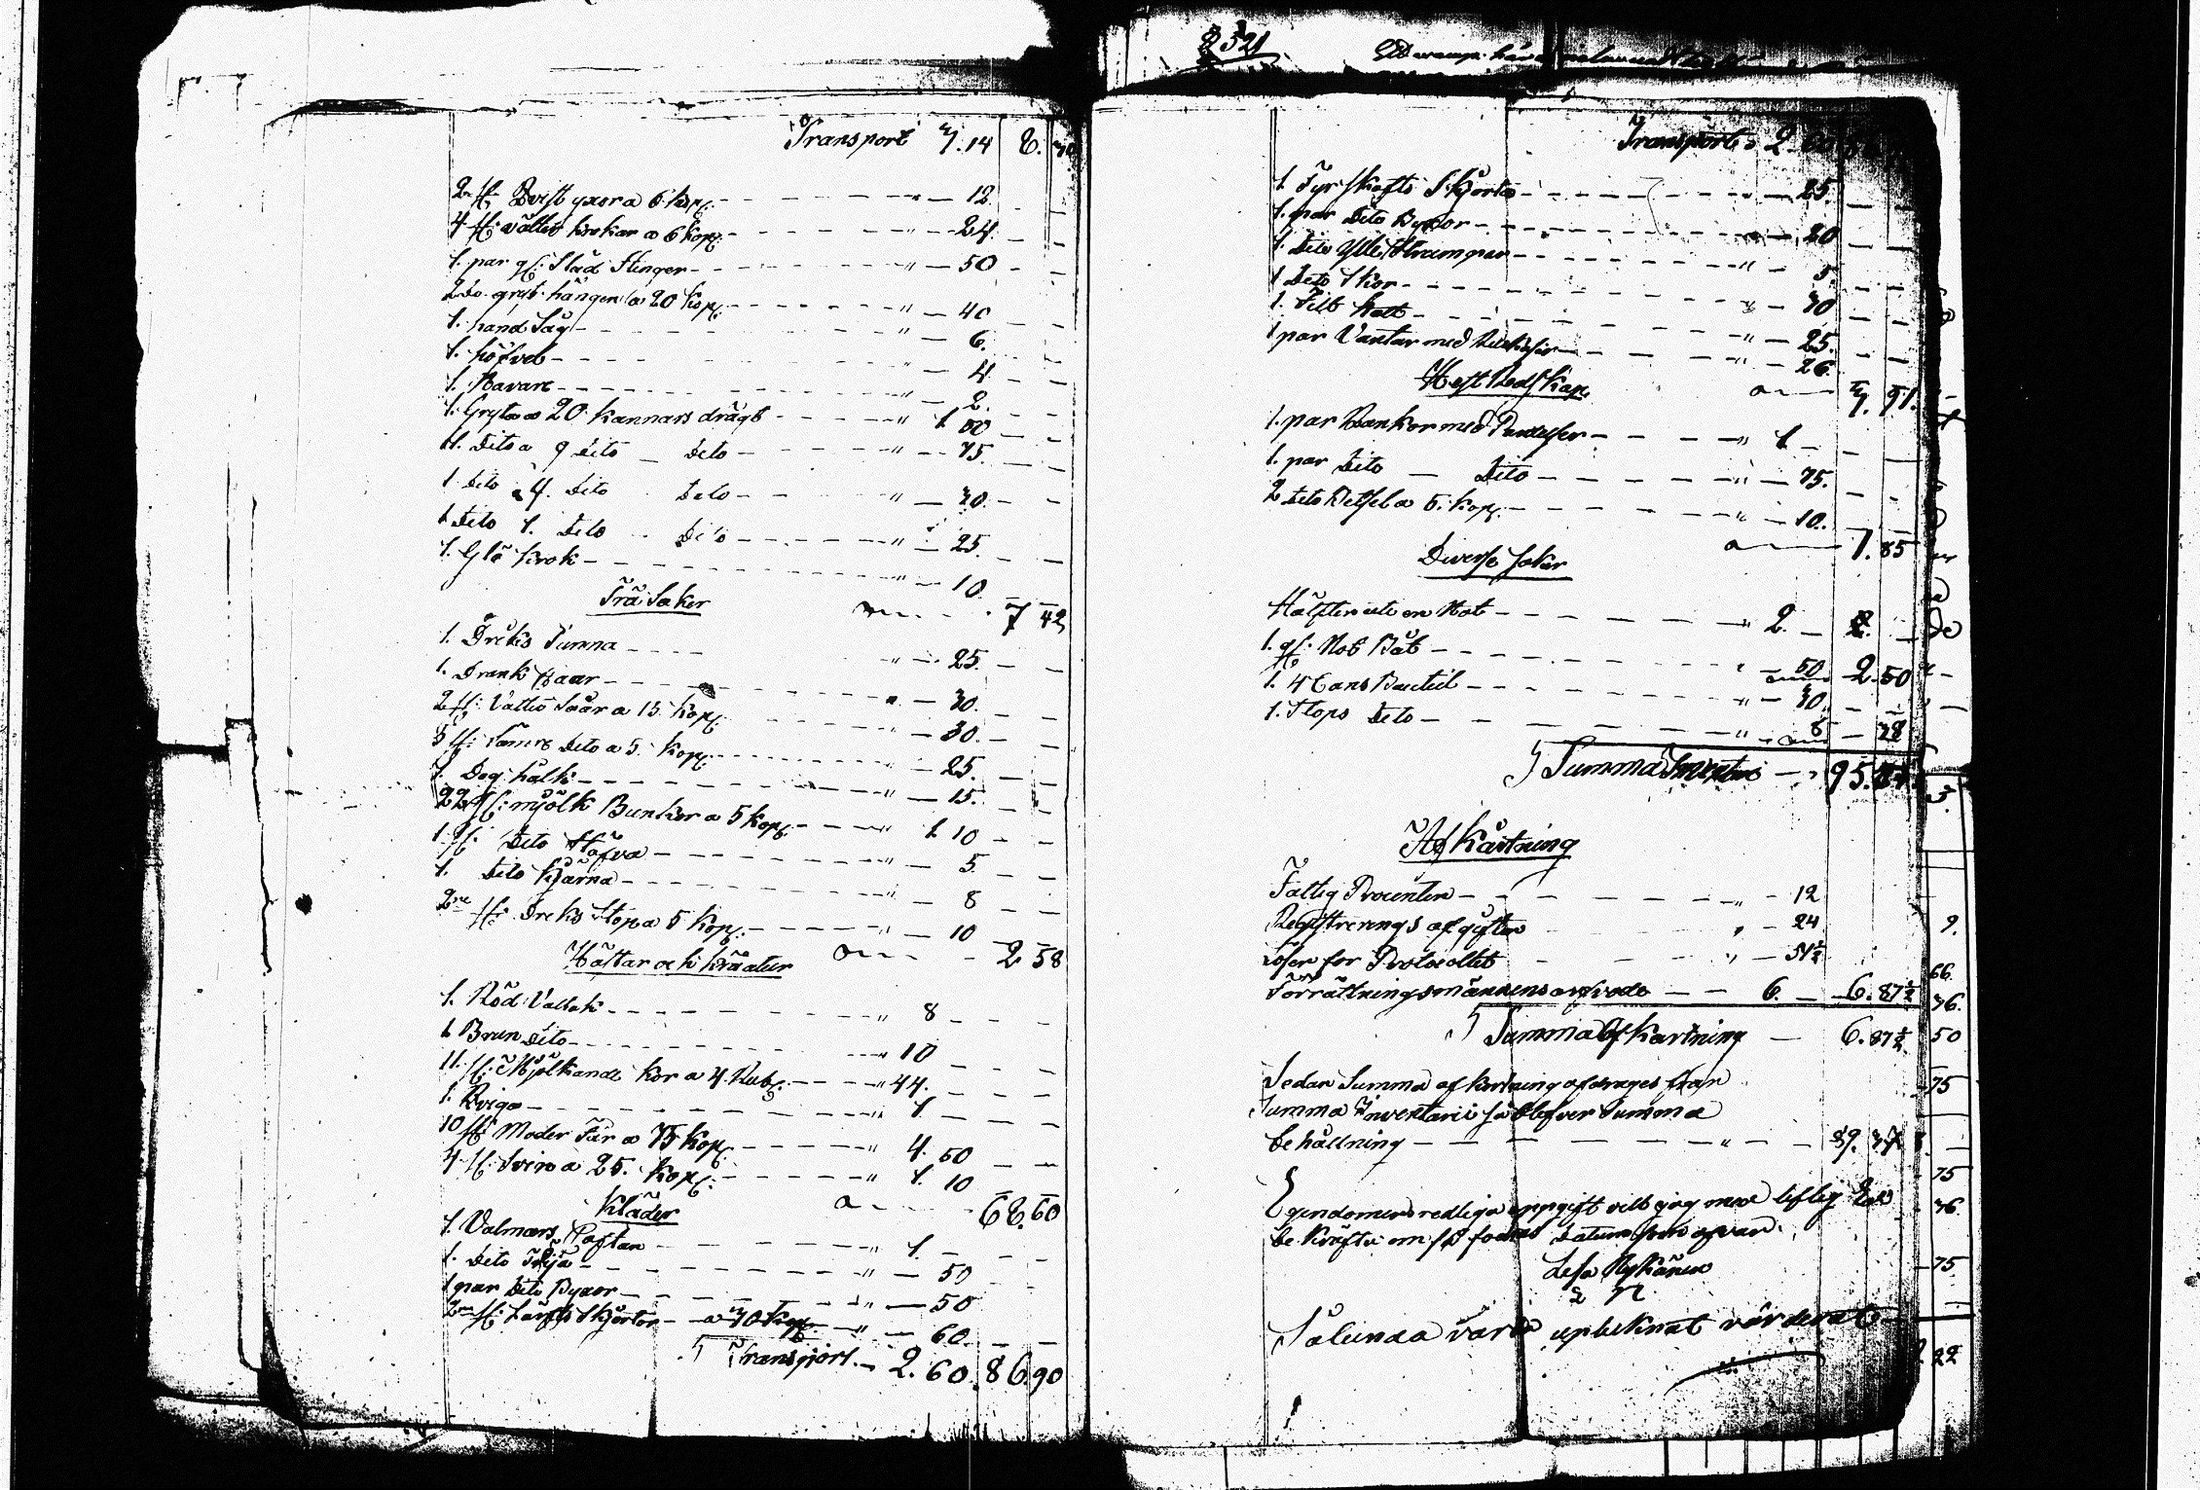 Transport 7. 14 8. 30
2 st: Bust yxor a 6 kop: — " — 12
4 st: vällte krokar a 6 Kop: — " — 24
1. par gl: Släd Stinger — " — 50
2 Do gryt hängen a 20 Kop: — " — 40
1. hand Såg — " — 6.
1. höfvel — " — 4
1. Navare — " — 2.
1. Gryta a 20 kannars drägt — " 1. 00
1. Dito a 9 dito — Dito — " — 75.
1 Dito a 4. Dito Dito — " — 30.
1 Dito 1. Dito Dito — " — 25
1. Glö krok — " — 10
Trä Saker — 7 42
1. Dricks Tunna — " — 25.
1. Drank saar — " — 30.
2 st: Vatten Såar a 15. Kop: — " — 30.
5 st: Sämre Dito a 5. Kop: — " — 25.
1. Deg hålk — " — 15.
22 st: mjölk Bunkor a 5 Kop: — " 1. 10
1. st: Dito Stäfva — " — 5.
1. Dito Kjärna — " — 8
2ne st: Dricks Stop a 5 Kop: — " — 10
Hästar och kräatur — 2 58
1. Röd Vallak — " 8
1 Brun Dito — " 10
11. st: Mjölkande Kor a 4. Rub: — " 44.
1. Qviga — " 1.
10 st: Moder Får a 45 Kop: — " 4. 50
4 st: Svin a 25. Kop: — " 1. 10
Kläder — 68. 60
1. Valmars Kaftan — " 1.
1. Dito Tröja — " — 50
1 par Dito Byxor — " — 50
2ne st: Lärfts Skjortor — a 30 Kop: — " — 60.
Transport — 2. 60. 86. 90
§ 521
Transport 2. 60
1. Fyrskafts Skjorta — " — 25.
1. par Dito Byxor — " — 20
1. Dito Ylle Strumpor — " — 5.
1 Dito Skor — " — 30
1. Filt hatt — " — 25.
1 par Vantar med — " — 26
Häst Redskap — 3. 91.
1. par Rankor med — " 1. —
1. par Dito — Dito — " — 75.
2 Dito Betsel a 5. Kop: — " — 10.
Diverse saker — 1. 85
Hälften uti en Not — " 2. —
1. st: Not Båt — " — 50 2. 50
1. 4 Cans Buteil — " — 30.
1. Stops Dito — " — 8 — 38
Summa Inventari — 95. 54
Afkårtning
Fattig Procenten — " — 12
Registrerings afgiften " — 24
Lösen for Protocollet — " — 51½
Förrättningsmännens arfvode — 6. — 6. 87½
Summa Afkårtning — 6. 87½
Sedan Summa afkortning afdrages från
Summa Inventarii så blefver Summa
behållning — " —
Egendomens redliga uppgift vill jag med liflig Ed
be kräfta om så fodras Datum som ofvan.
Lesa Rykänen
Sålunda vara upteknat värderat